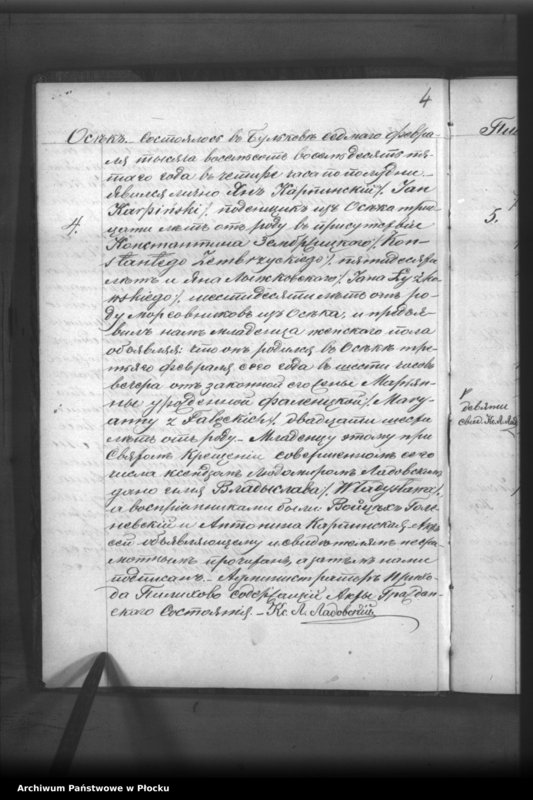 4
Осѣкъ. Состоялось въ Бульковѣ седмаго февра-
ля тысяча восемьсотъ восемьдесять пя-
таго года въ четыре часа по полудни.
явился лично Янъ Карпинскій /: Jan
Karpiński :/ поденщикъ изъ Осѣка трид-
4.
цати лѣтъ отъ роду въ присутствіи
Константина /: Kon-
stantego :/ пятидесяти
лѣтъ и Яна /: Jana
:/ шестидесяти лѣтъ отъ ро-
ду изъ Осѣка, и предъя-
вилъ намъ младенца женскаго пола
объявляя: что онъ родился въ Осѣкѣ тре-
тьяго февраля сего года въ шести часовъ
вечера отъ законной его жены Марьян-
ны урожденной /: Mary-
anny z :/ двадцати шести
лѣтъ отъ роду. Младенцу этому при
Святомъ Крещеніи совершенномъ сего
числа ксендзомъ Ладовскимъ
дано имя Владыслава /: Władysława :/
а воспріемниками были Войцѣхъ
и Антонина Карпинская. Актъ
сей объявляющему и свидѣтелямъ негра-
мотнымъ прочитанъ, а затѣмъ нами
подписанъ. Администраторъ Прихо-
да Пилихово Содержащій Акты Граждан-
скаго Состоянія. Кс. Л. Ладовскій
5.
девяти
Archiwum Państwowe w Płocku